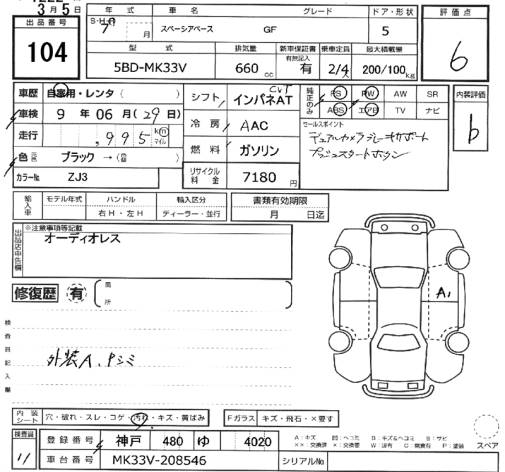 3月5日
出品番号 104
年式 車名 グレード ドア・形状 評価点
7 月 スペーシアベース GF 5 6
型式 排気量 新車保証書 乗車定員 最大積載量
有無記入
5BD-MK33V 660cc 有 2/4人 200/100kg
車歴 自家用・レンタ( )
車検 9年06月(29日)
走行 ,995 km マイル
色 ブラック→( )
カラーNo ZJ3
シフト インパネAT CVT
冷房 AAC
燃料 ガソリン
リサイクル料金 7180 円
純正のみ PS PW AW SR
ABS エアB TV ナビ
セールスポイント
デュアルカメラブレーキサポート
プッシュスタートボタン
内装評価 b
輸入車 モデル年式 ハンドル 輸入区分
右H・左H ディーラー・並行
書類有効期限
月 日迄
出品店申告欄 ※注意事項等記載
オーディオレス
修復歴 有
箇所
検査員記入欄
外装A、Pシミ
A1
内装シート 穴・破れ・スレ・コゲ・汚れ・キズ・黄ばみ
Fガラス キズ・飛石・×要す
検査員 11
登録番号 神戸 480 ゆ 4020
車台番号 MK33V-208546 シリアルNo
A:キズ U:ヘコミ B:キズ&ヘコミ S:サビ
××:交換済 X:要交換 W:波有 C:腐食有 P:塗装
スペア